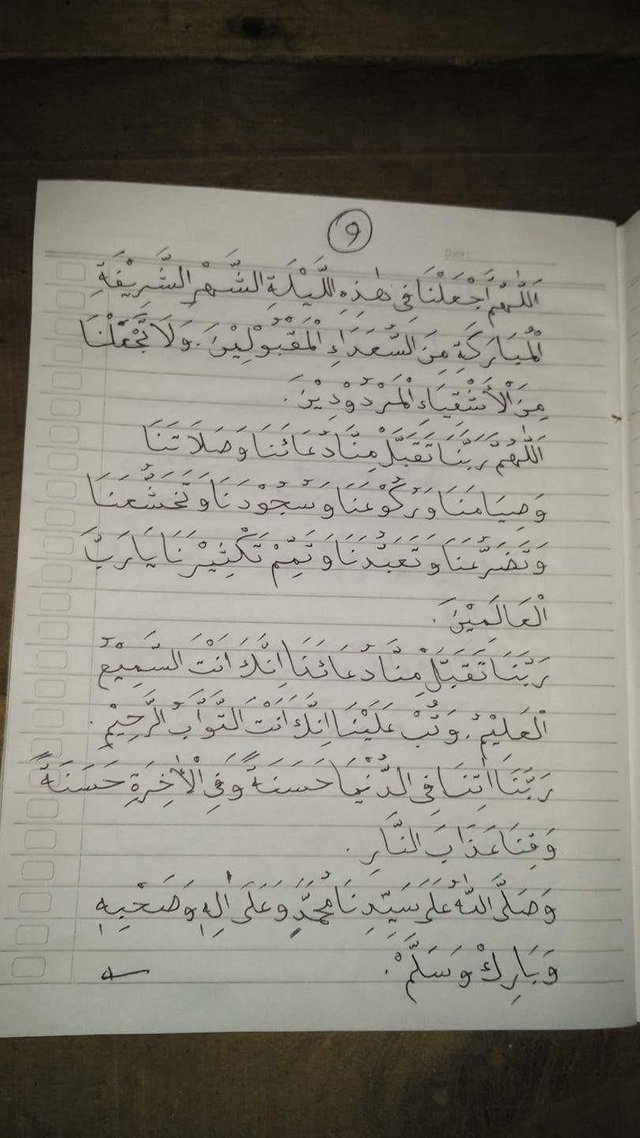 ٩
Date:
اَللّٰهُمَّ اجْعَلْنَا فِي هٰذِهِ اللَّيْلَةِ الشَّهْرِ الشَّرِيْفَةِ
الْمُبَارَكَةِ مِنَ السُّعَدَاءِ الْمَقْبُوْلِيْنَ. وَلَا تَجْعَلْنَا
مِنَ الْأَشْقِيَاءِ الْمَرْدُوْدِيْنَ.
اَللّٰهُمَّ رَبَّنَا تَقَبَّلْ مِنَّا دُعَائَنَا وَصَلَاتَنَا
وَصِيَامَنَا وَرُكُوْعَنَا وَسُجُوْدَنَا وَتَخَشُّعَنَا
وَتَضَرُّعَنَا وَتَعَبُّدَنَا وَتَمِّمْ تَكْثِيْرَنَا يَا رَبَّ
الْعَالَمِيْنَ.
رَبَّنَا تَقَبَّلْ مِنَّا دُعَائَنَا اِنَّكَ اَنْتَ السَّمِيْعُ
الْعَلِيْمُ. وَتُبْ عَلَيْنَا اِنَّكَ اَنْتَ التَّوَّابُ الرَّحِيْمُ.
رَبَّنَا اٰتِنَا فِي الدُّنْيَا حَسَنَةً وَفِي الْاٰخِرَةِ حَسَنَةً
وَقِنَا عَذَابَ النَّارِ.
وَصَلَّى اللّٰهُ عَلَى سَيِّدِنَا مُحَمَّدٍ وَعَلَى اٰلِهِ وَصَحْبِهِ
وَبَارِكْ وَسَلَّمْ.